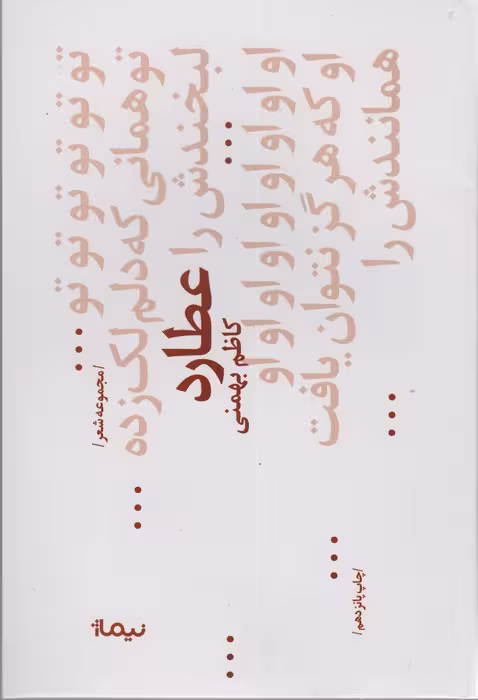 تو تو تو تو تو تو ...
/مجموعه شعر/
تو همانی که دلم لک زده ...
لبخندش را
عطارد
کاظم بهمنی
...
او او او او او او او او او
او که هرگز نتوان یافت ...
/چاپ پانزدهم/
همانندش را ...
نیماژ